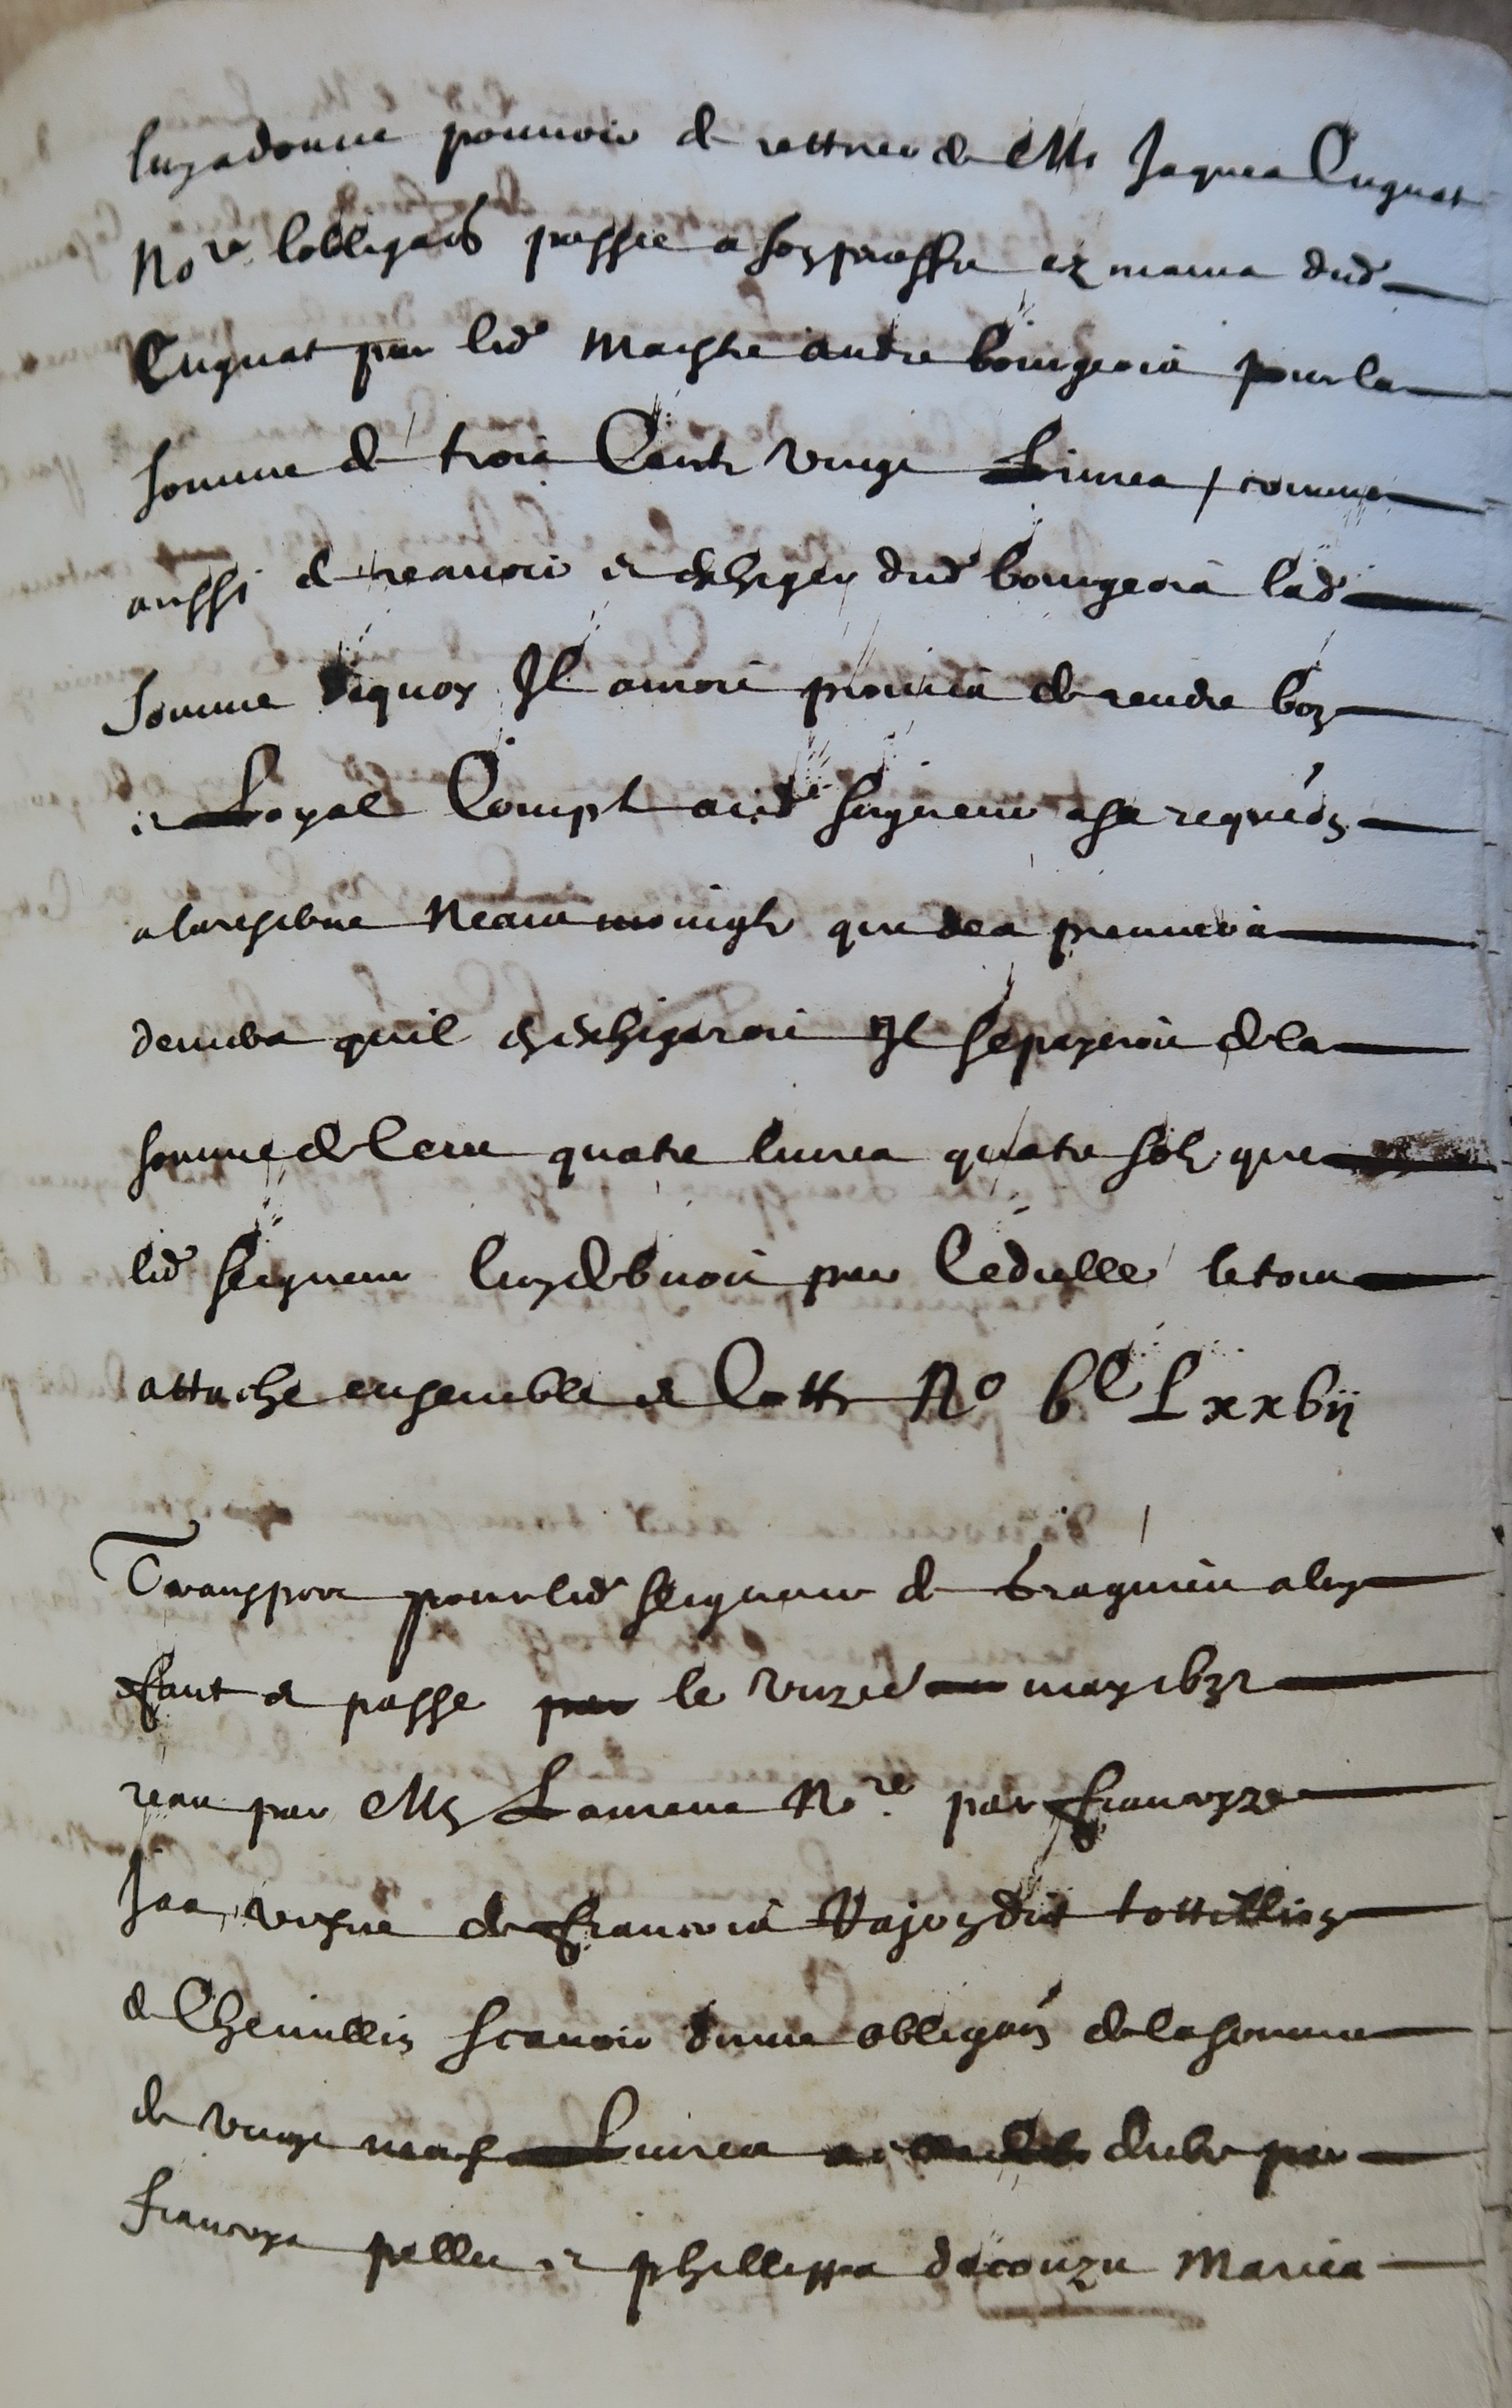 luy a donne pouvoir de rettirer de Me Jaques Cugnat
Nore lobligaon passee a son proffit ez mains dud
Cugnat par led Maistre andre bourgeois pour la
somme de trois Centz vingt Livres / comme
aussi de recevoir et exhiger dud bourgeois lad
somme dequoy Il auroit promis de rendre bon
et Loyal Compte aud seigneur a sa requion
a la reserve Neantmoingtz que des premiers
deniers quil en exhigeroit Il se payeroit de la
somme de Cent quatre livres quatre solz que
led seigneur luy debvoit par Cedulle le tout
attache ensemble et Cotte No bC Lxxbij
Transport pour led seigneur de a luy
faict et passe par le unze may 163
receu par Me Laurens Nore par francoyze
Jas vefve de francois Vajon dit tottillion
de Chevillin scavoir dune obligaon de la somme
de vingt neuf Livres deube par
francoys pellu et phillippa decouzu Maries